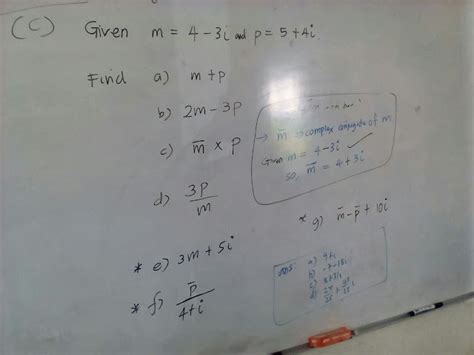 (C) Given m = 4 - 3i and p = 5 + 4i.
Find a) m + p
b) 2m - 3p
c) m̅ × p
d) 3p/m
* e) 3m + 5i
* f) p̅/(4+i)
→ m̅ ⇒ complex conjugate of m
Given m = 4 - 3i ✓
so, m̅ = 4 + 3i
* g) m̅ - p̅ + 10i
ans: a) 9+i
b) -7-18i
c)
d)